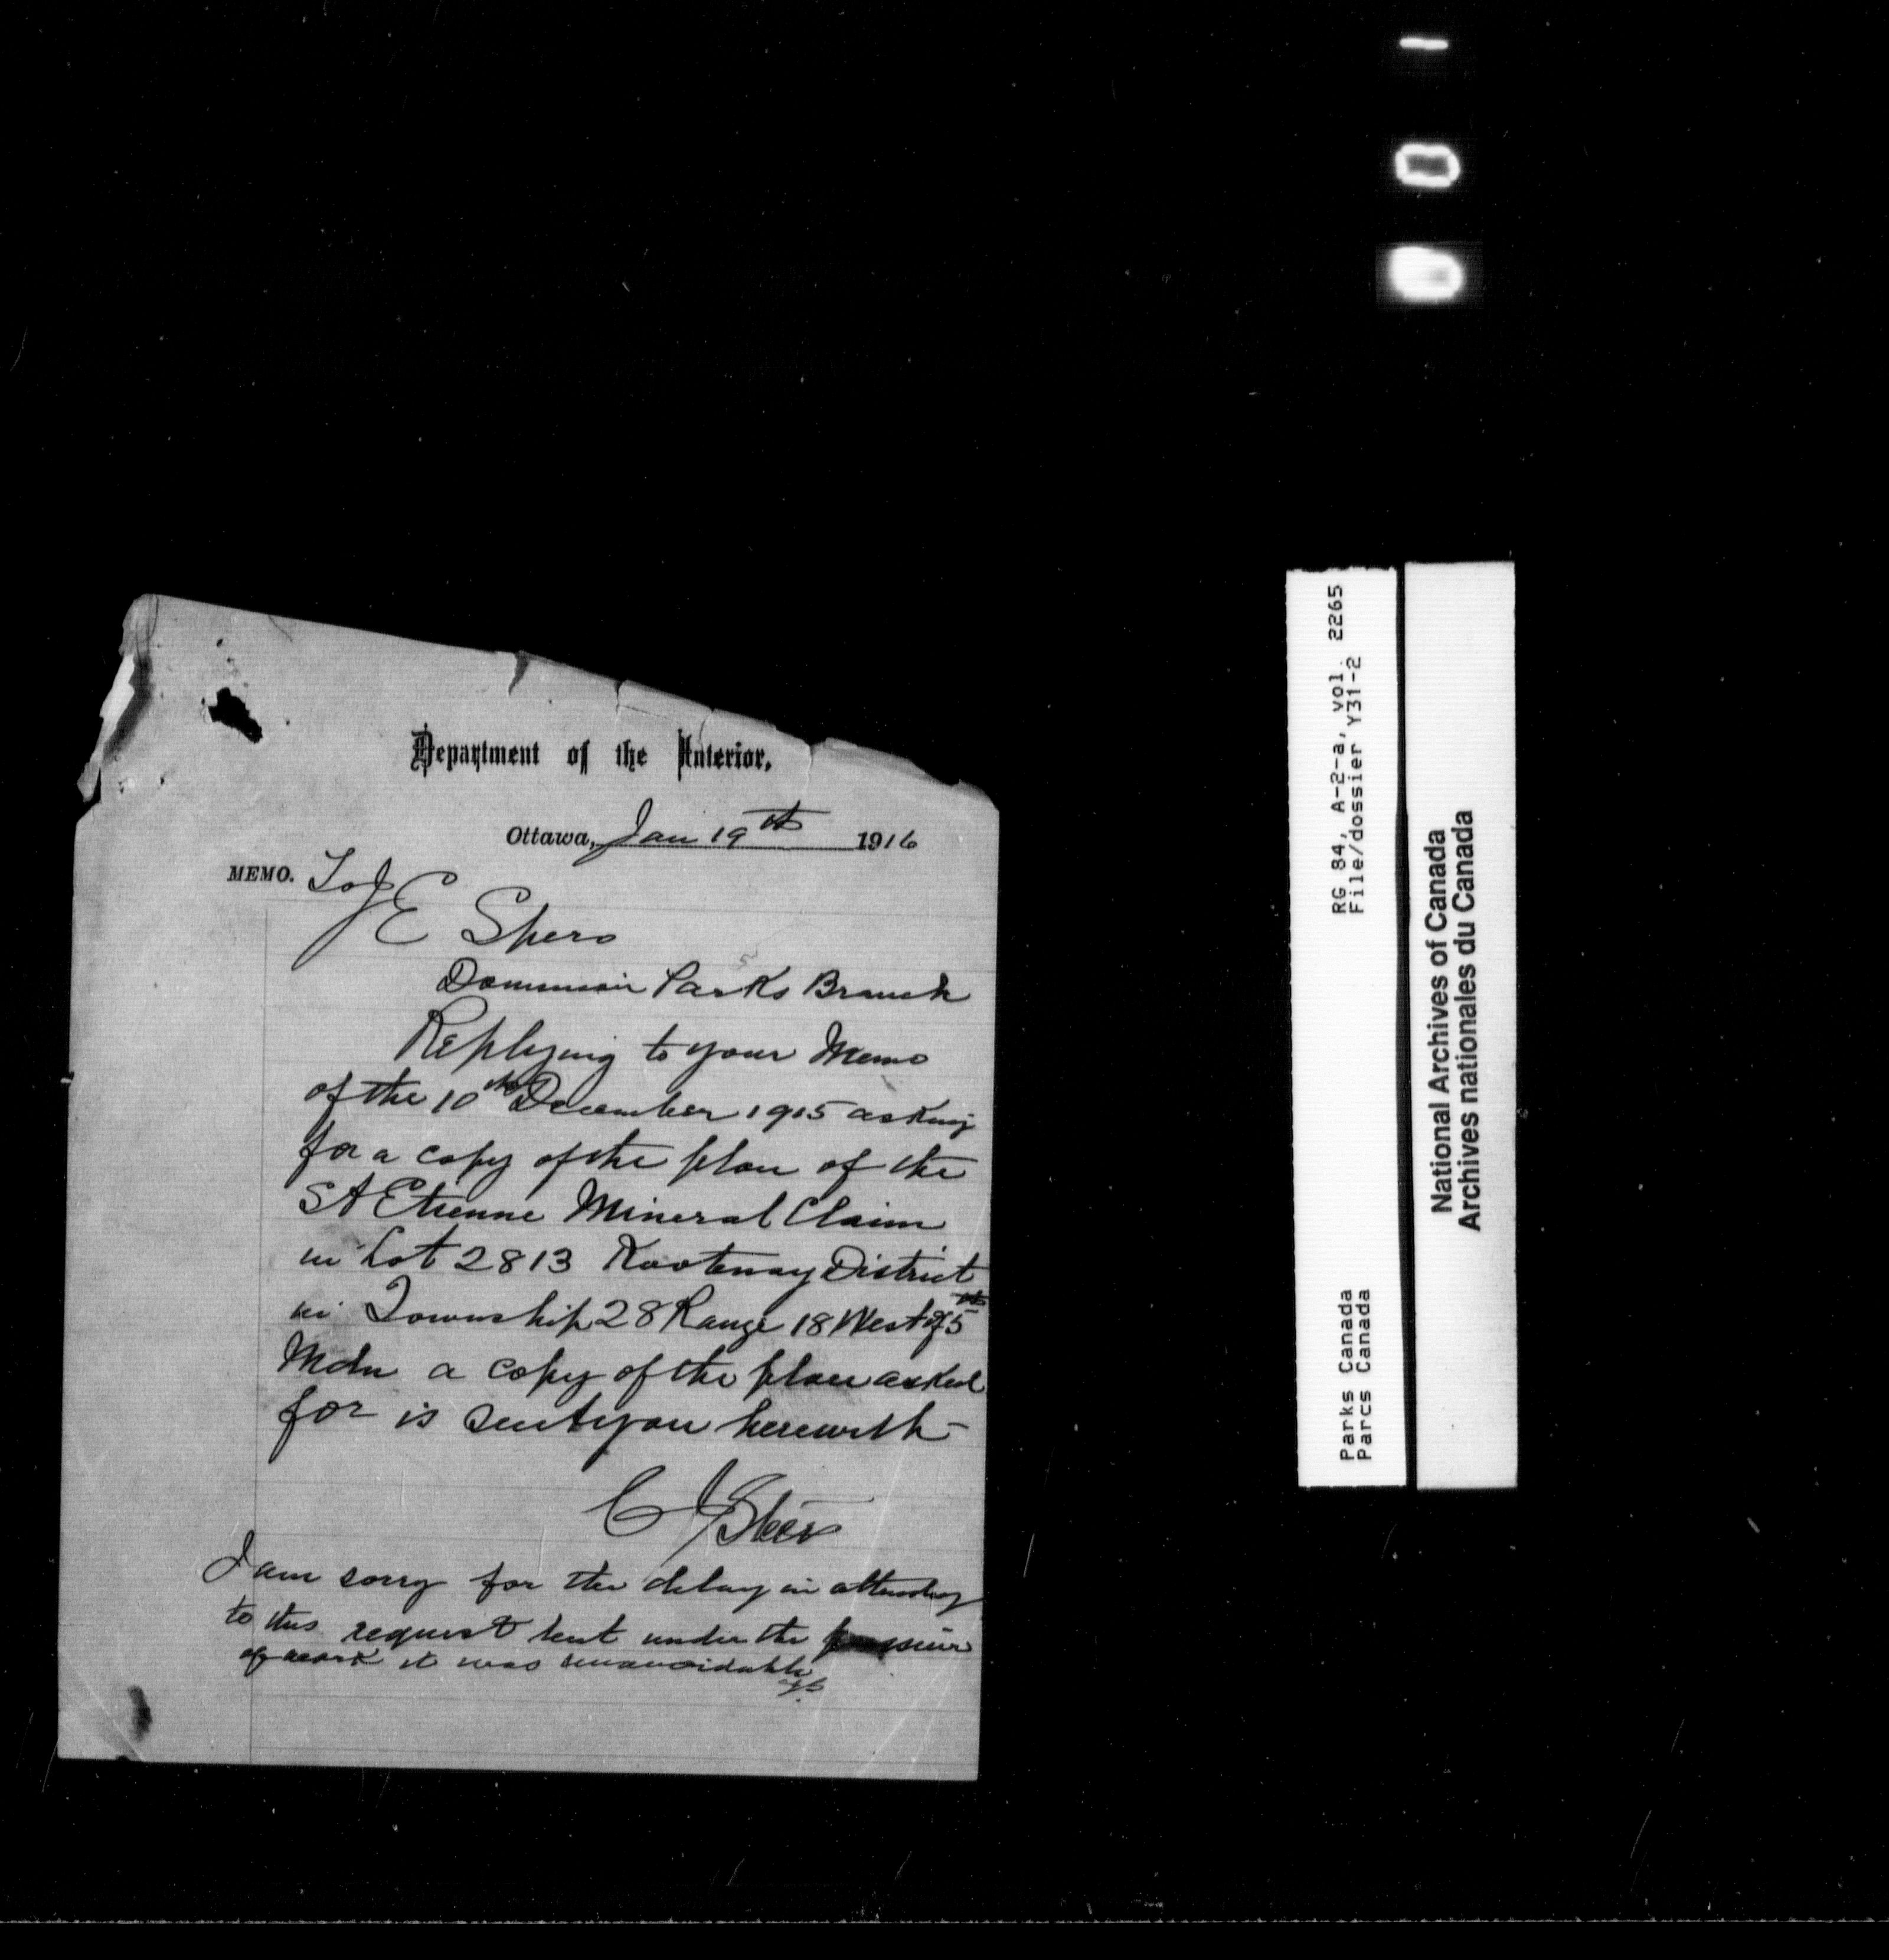 Department of the Interior,
Ottawa, Jan 19th 1916
MEMO. To J
E Spero
Dominion Parks Branch
Replying to your Memo
of the 10th December 1915 asking
for a copy of the plan of the
St Etienne Mineral Claim
in Lot 2813 Kootenay District
in Township 28 Range 18 West of 5th
Mdn a copy of the plan asked
for is sent you herewith
C
I am sorry for the delay in attending
to this request but under the
of work it was unavoidable
RG 84, A-2-a, vol. 2265
File/dossier Y31-2
Parks Canada
Parcs Canada
National Archives of Canada
Archives nationales du Canada